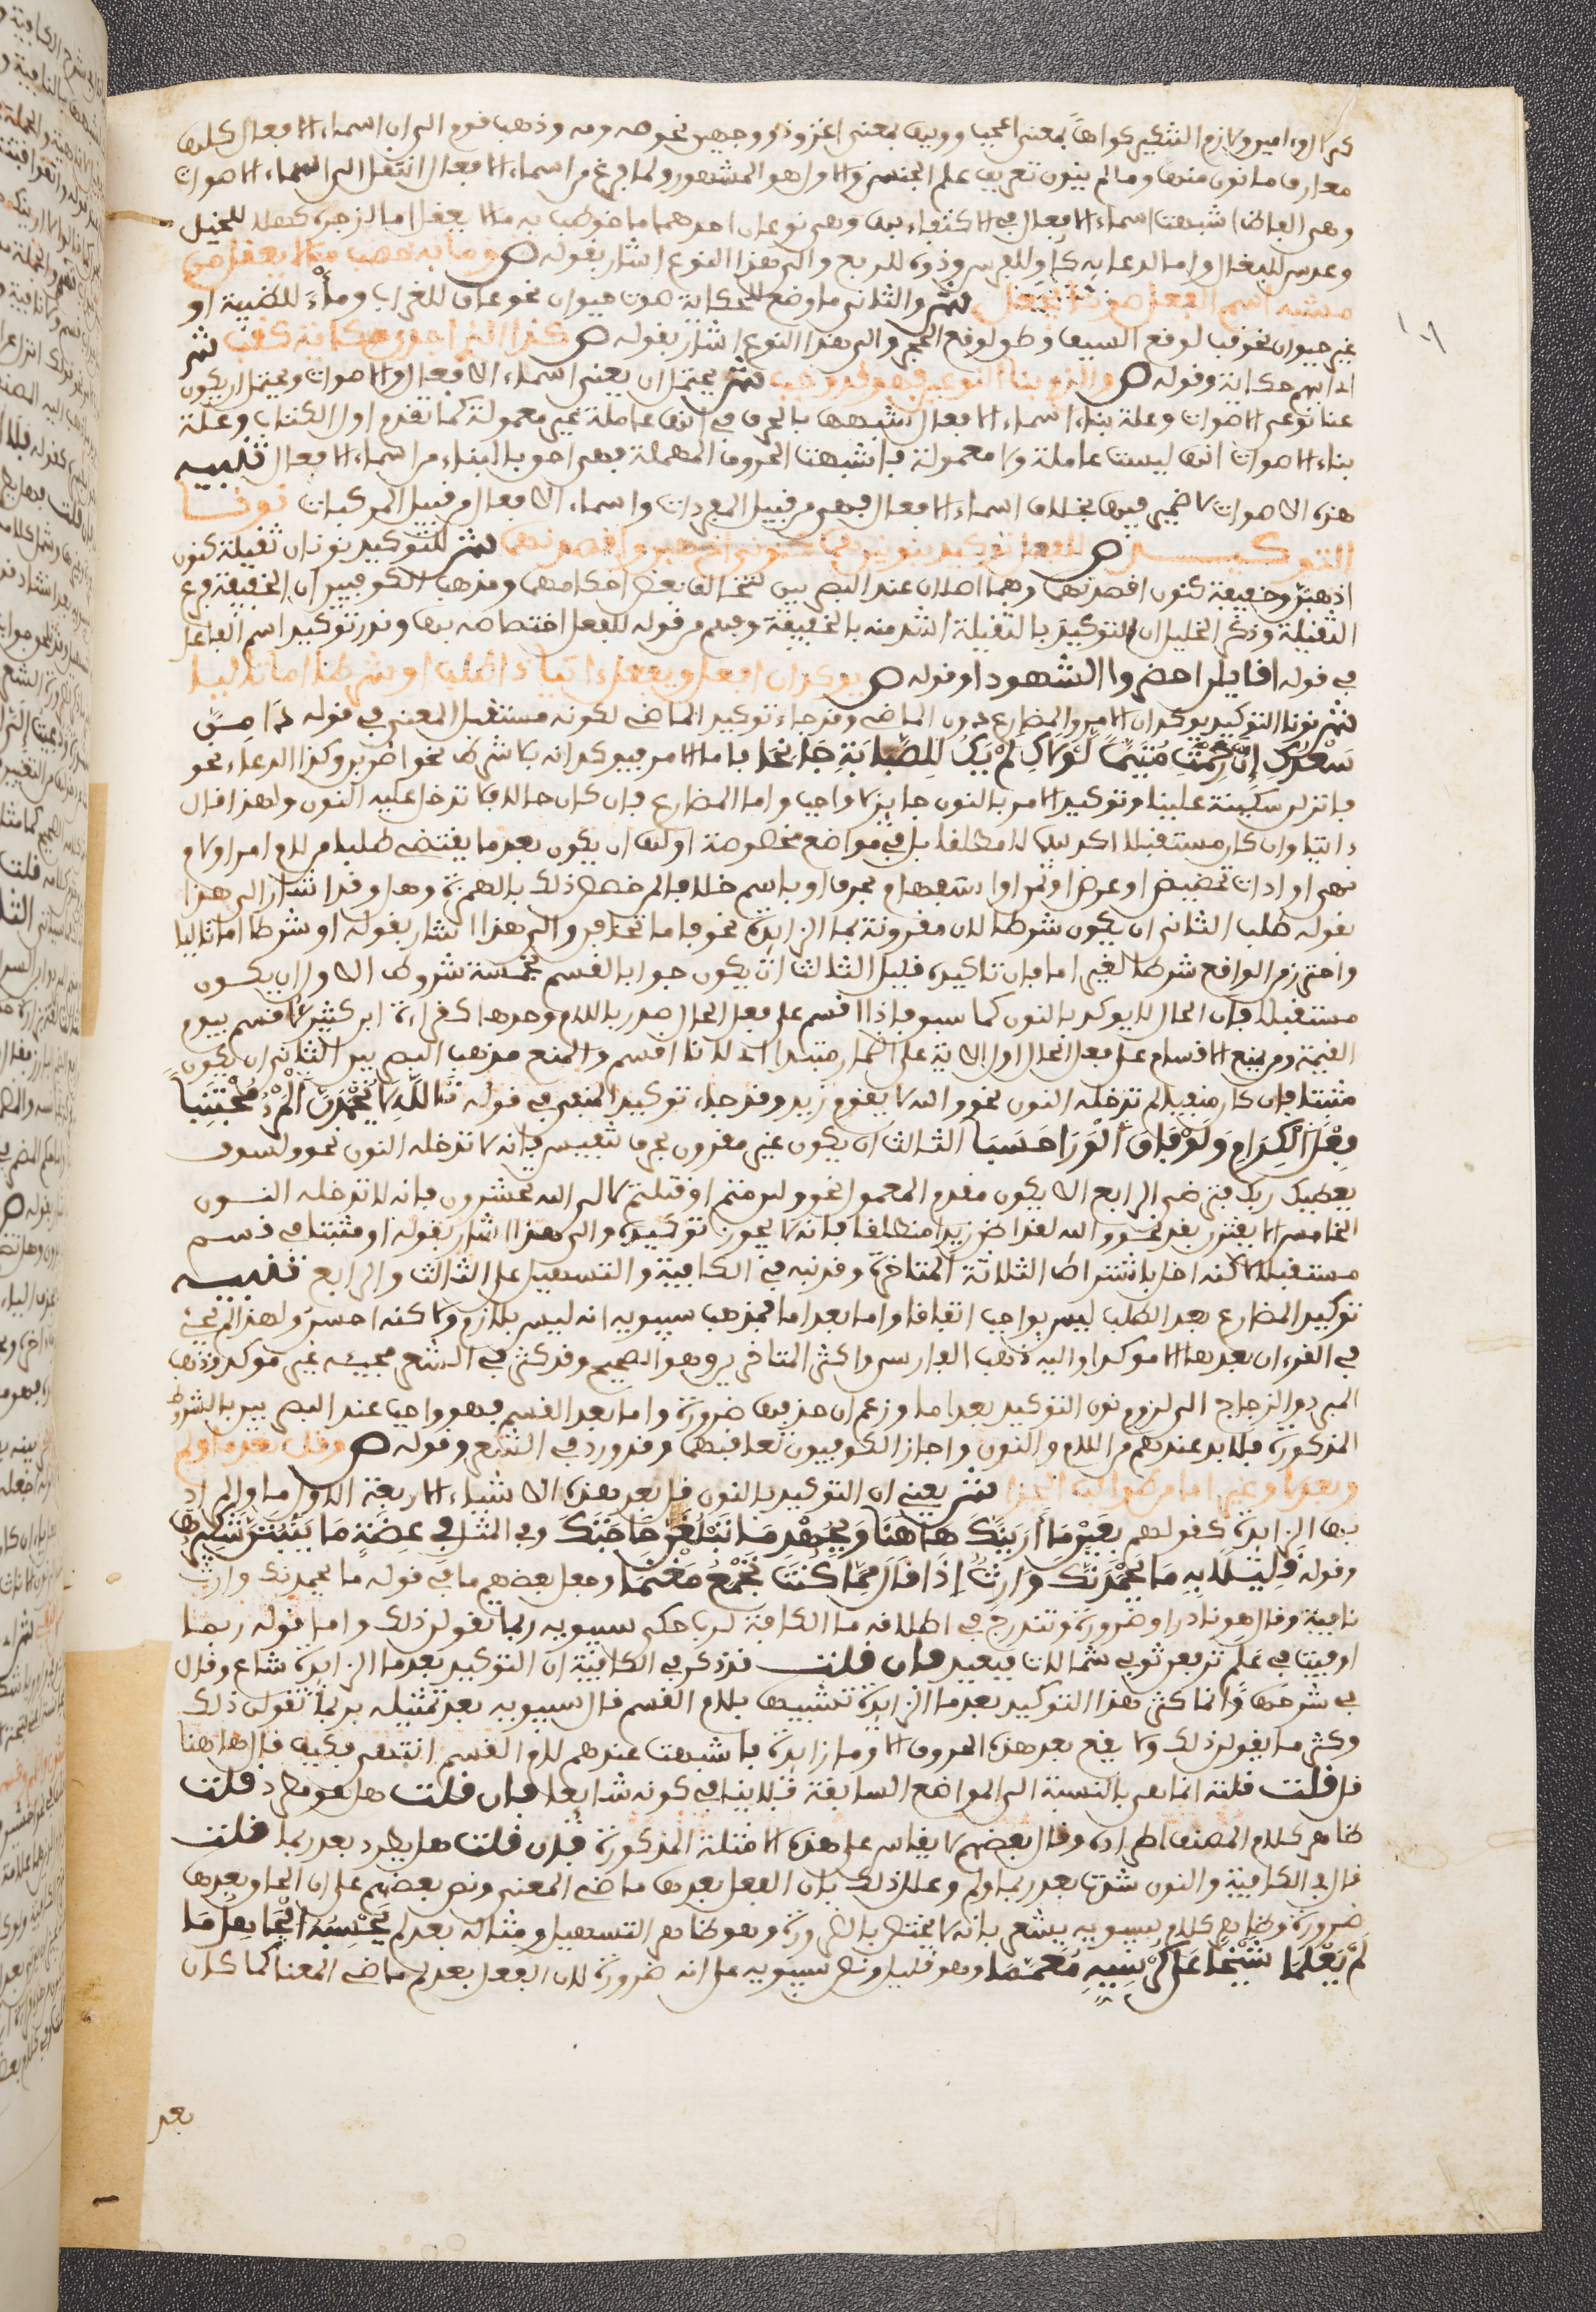 كنزال وءامين ولازم التنكير كواها بمعنى اعجب وويها بمعنى اغر وذو وجهين نحو صه ومه وذهب قوم الى ان اسماء الافعال كلها
معارف ما نون منها وما لم ينون تعريف علم الجنس والاول هو المشهور ولما فرغ من اسماء الافعال انتقل الى اسماء الاصوات
وهي الفاظ اشبهت اسماء الافعال في الاكتفاء بها وهي نوعان احدهما ما خوطب به ما لا يعقل اما لزجره كهلا للخيل
وعدس للبغل او اما لدعائه كاو للفرس وذوه للربع والى هذا النوع اشار بقوله ص وما به خوطب ما لا يعقل من
مشبه اسم الفعل صوتا يجعل ش والثاني ما وضع للحكاية صوت حيوان نحو غاق للغراب وماء للظبية او
غير حيوان نحو قب لوقع السيف وطق لوقع الحجر والى هذا النوع اشار بقوله ص كذا الذي اجدى حكاية كقب ش
اى افهم حكاية وقوله ص والزم بنا النوعين فهو قد وجب ش يحتمل ان يعني اسماء الافعال والاصوات ويحتمل ان يكون
عنا نوعي الاصوات وعلة بناء اسماء الافعال شبهها بالحرف في انها عاملة غير معمولة كما تقدم اول الكتاب وعلة
بناء الاصوات انها ليست عاملة ولا معمولة فاشبهت الحروف المهملة فهي احق بالبناء من اسماء الافعال تنبيه
هذه الاصوات لا ضمير فيها بخلاف اسماء الافعال فهي من قبيل المفردات واسماء الافعال من قبيل المركبات نونا
التوكيد ص للفعل توكيد بنونين هما كنوني اذهبن واقصدنهما ش للتوكيد نونان ثقيلة كنون
اذهبن وخفيفة كنون اقصدنهما وهما اصلان عند البصريين لتخالف بعض احكامهما ومذهب الكوفيين ان الخفيفة فرع
الثقيلة وذكر الخليل ان التوكيد بالثقيلة اشد منه بالخفيفة وفهم من قوله للفعل اختصاصه بها وندر توكيد اسم الفاعل
في قوله اقائلن احضروا الشهودا وقوله ص يوكدان افعل ويفعل ءاتيا ذا طلب او شرطا اما تاليا
ش نونا التوكيد يوكدان الامر والمضارع دون الماضي وقد جاء توكيد الماضي لكونه مستقبل المعنى في قوله دامن
سعدك ان رحمت متيما لولاك لم يك للصبابة جانحا فاما الامر فيوكدانه بلا شرط نحو اضربن وكذا الدعاء نحو
فانزلن سكينة علينا وتوكيد الامر بالنون جائز لا واجب واما المضارع فان كان حالا فلا تدخل عليه النون ولهذا قال
ءاتيا وان كان مستقبلا اكد بها لا مطلقا بل في مواضع مخصوصة اولها ان يكون بعد ما يقتضي طلبا من لام امر او لا
نهي او ادات تحضيض او عرض او تمن او استفهام بحرف او باسم خلافا لمن خص ذلك بالهمزة وهل وقد اشار الى هذا
بقوله طلب الثاني ان يكون شرطا لان مقرونة بما الزايدة نحو فاما تخافن والى هذا اشار بقوله او شرطا اما تاليا
واحترز من الواقع شرطا لغير اما فان تاكيده قليل الثالث ان يكون جوابا لقسم بخمسة شروط الاول ان يكون
مستقبلا فان الحال لا يوكد بالنون كما سبق فاذا اقسم على فعل الحال صدر باللام وحدها كقراءة ابن كثير لاقسم بيوم
القيمة ومن منع الاقسام على فعل الحال اول الاية على اضمار مبتدا اى لانا اقسم والمنع مذهب البصريين الثاني ان يكون
مثبتا فان كان منفيا لم تدخله النون نحو والله لا يقوم زيد وقد جاء توكيد المنفي في قوله تالله لا يحمدن المرء مجتنبا
فعل الكرام ولو فاق الورا حسبا الثالث ان يكون غير مقرون بحرف تنفيس فانه لا تدخله النون نحو ولسوف
يعطيك ربك فترضى الرابع الا يكون مقدم المعمول نحو ولين متم او قتلتم لالى الله تحشرون فانه لا تدخله النون
الخامس الا يقترن بقد نحو والله لقد اضن زيدا منطلقا فانه لا يجوز توكيده والى هذا اشار بقوله او مثبتا في قسم
مستقبلا لكنه اخل باشتراط الثلاثة المتاخرة وقد نبه في الكافية والتسهيل على الثالث والرابع تنبيه
توكيد المضارع بعد الطلب ليس بواجب اتفاقا واما بعد اما فمذهب سيبويه انه ليس بلازم ولاكنه احسن ولهذا لم يجئ
في القرءان بعدها الا موكدا واليه ذهب الفارسي واكثر المتاخرين وهو الصحيح وقد كثر في الشعر مجيئه غير موكد وذهب
المبرد والزجاج الى لزوم نون التوكيد بعد اما وزعم ان حذفها ضرورة واما بعد القسم فهو واجب عند البصريين بالشروط
المذكورة فلا بد عندهم من اللام والنون واجاز الكوفيون تعاقبهما وقد ورد في الشعر وقوله ص وقل بعد ما ولم
وبعد لا وغير اما من طوالب الجزا ش يعني ان التوكيد بالنون قل بعد هذه الاشياء الاربعة الاول ما والمراد
بها الزايدة كقولهم بعين ما ارينك هاهنا وبجهد ما تبلغن حاجتك وفي المثل في عضة ما ينبتن شكيرها
وقوله قليلا به ما يحمدنك وارث اذا نال مما كنت تجمع مغنما وجعل بعضهم ما في قوله ما يحمدنك وارث
نافية وقال هو نادر او ضرورة وتندرج في اطلاقه ما الكافة لرب حكى سيبويه ربما تقولن ذلك واما قوله ربما
اوفيت في علم ترفعن ثوبي شمالات فبعيد فان قلت قد ذكر في الكافية ان التوكيد بعد ما الزايدة شاع وقال
في شرحها وانما كثر هذا التوكيد بعد ما الزايدة تشبيها بلام القسم قال سيبويه بعد تمثيله بربما تقولن ذلك
وكثر ما تقولن ذلك ولا يقع بعد هذه الحروف الا وما زايدة فاشبهت عندهم لام القسم انتهى فكيف قال هاهنا
قل قلت قلته انما هي بالنسبة الى المواضع السابقة فلا ينافي كونه شايعا فان قلت هل هو مطرد قلت
ظاهر كلام المصنف اطراده وقال بعضهم لا يقاس على هذه الامثلة المذكورة فان قلت هل يطرد بعد ربما قلت
قال في الكافية والنون شذت بعد ربما ولم وعلل ذلك بان الفعل بعدها ماضي المعنى ونص بعضهم على ان الحاقه بعدها
ضرورة وظاهر كلام سيبويه يشعر بانه لا يختص بالضرورة وهو ظاهر التسهيل ومثاله بعد لم يحسبه الجاهل ما
لم يعلما شيخا على كرسيه معمما وهو قليل ونص سيبويه على انه ضرورة لان الفعل بعد لم ماضي المعنا كما كان
بعد